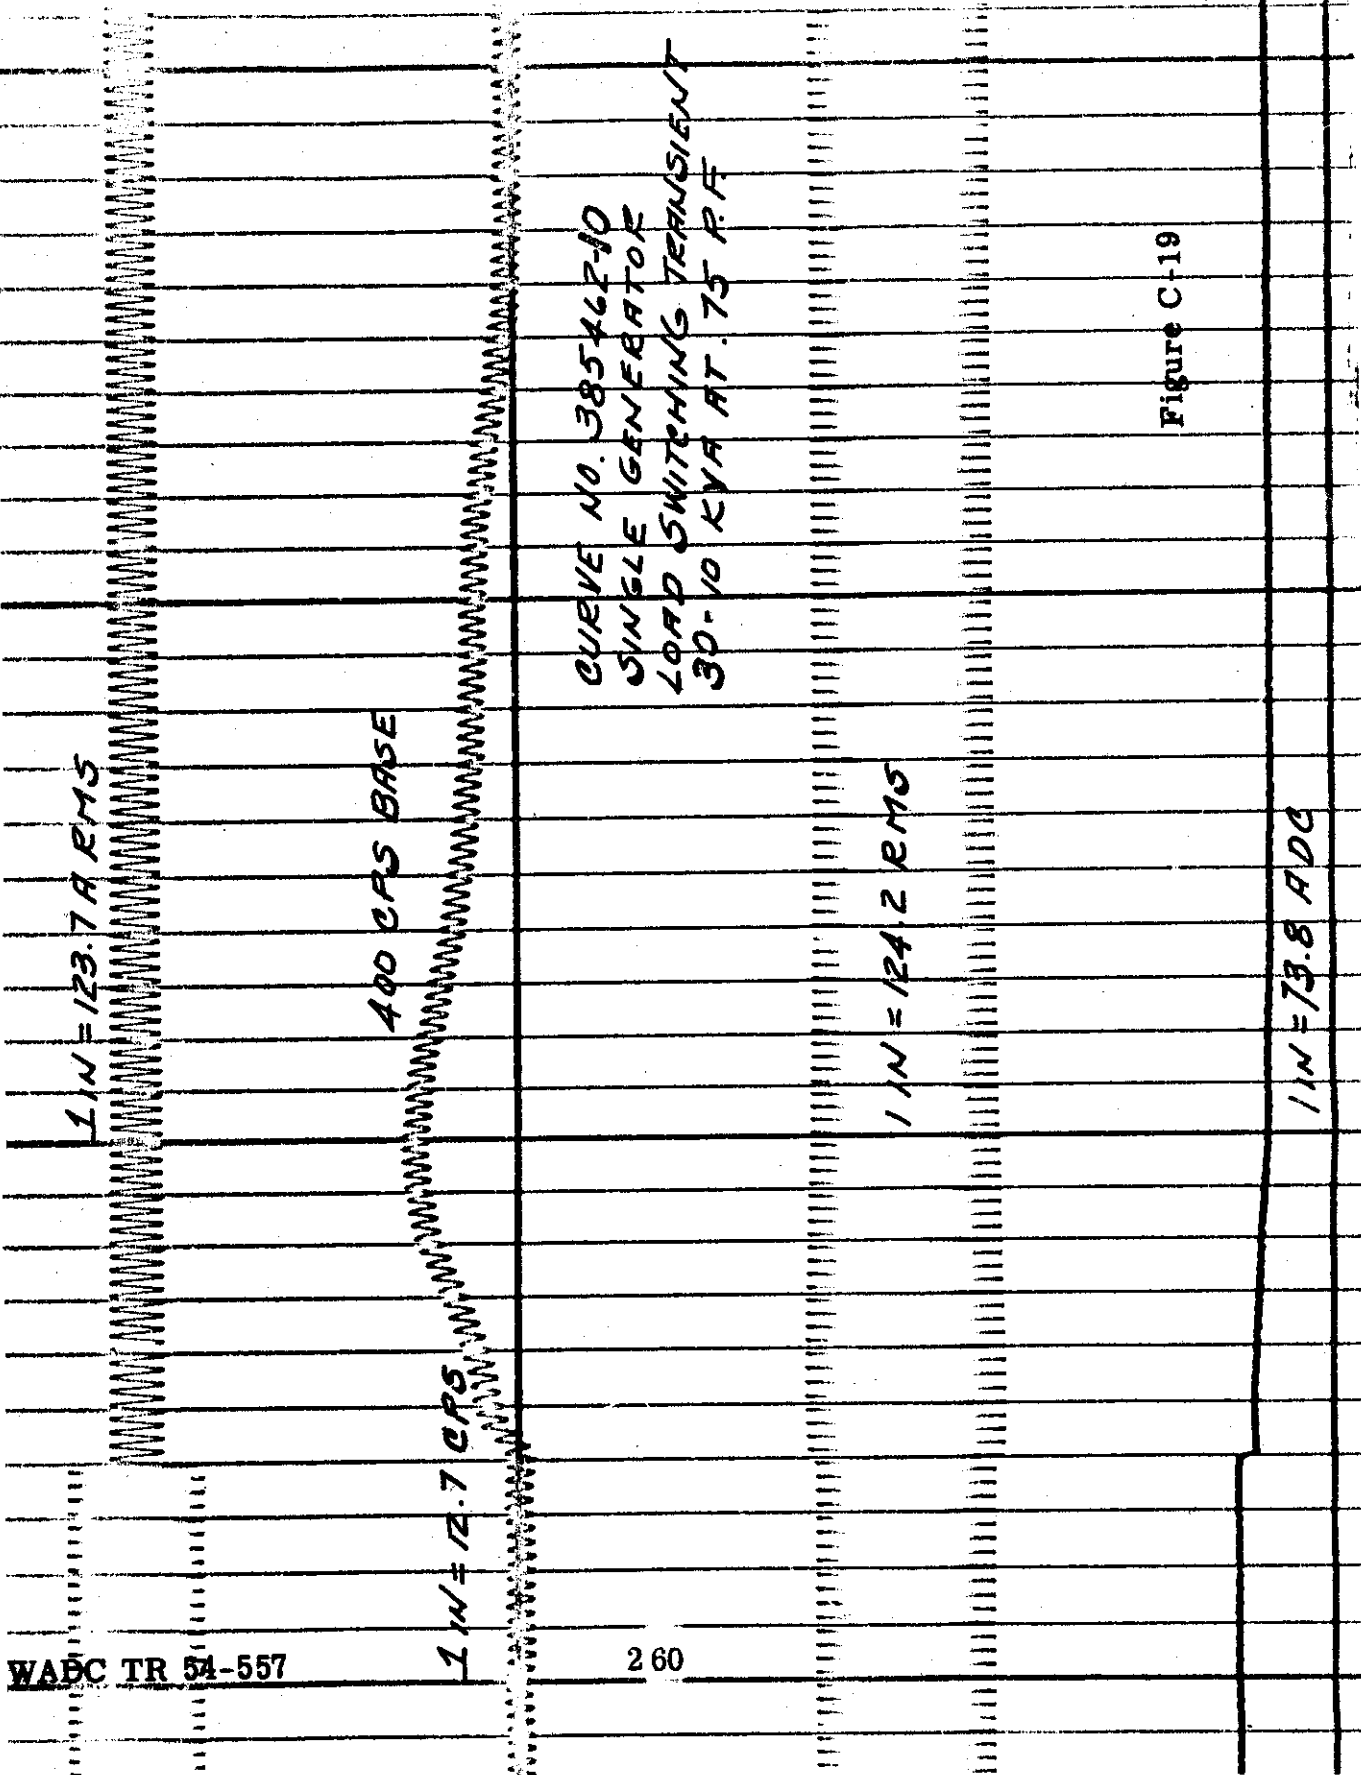 1 IN = 123.7 A RMS
400 CPS BASE
1 IN = 12.7 CPS
CURVE NO. 385462-10
SINGLE GENERATOR
LOAD SWITCHING TRANSIENT
30-10 KVA AT .75 P.F.
1 IN = 124.2 RMS
Figure C-19
1 IN = 73.8 A DC
WADC TR 54-557
260